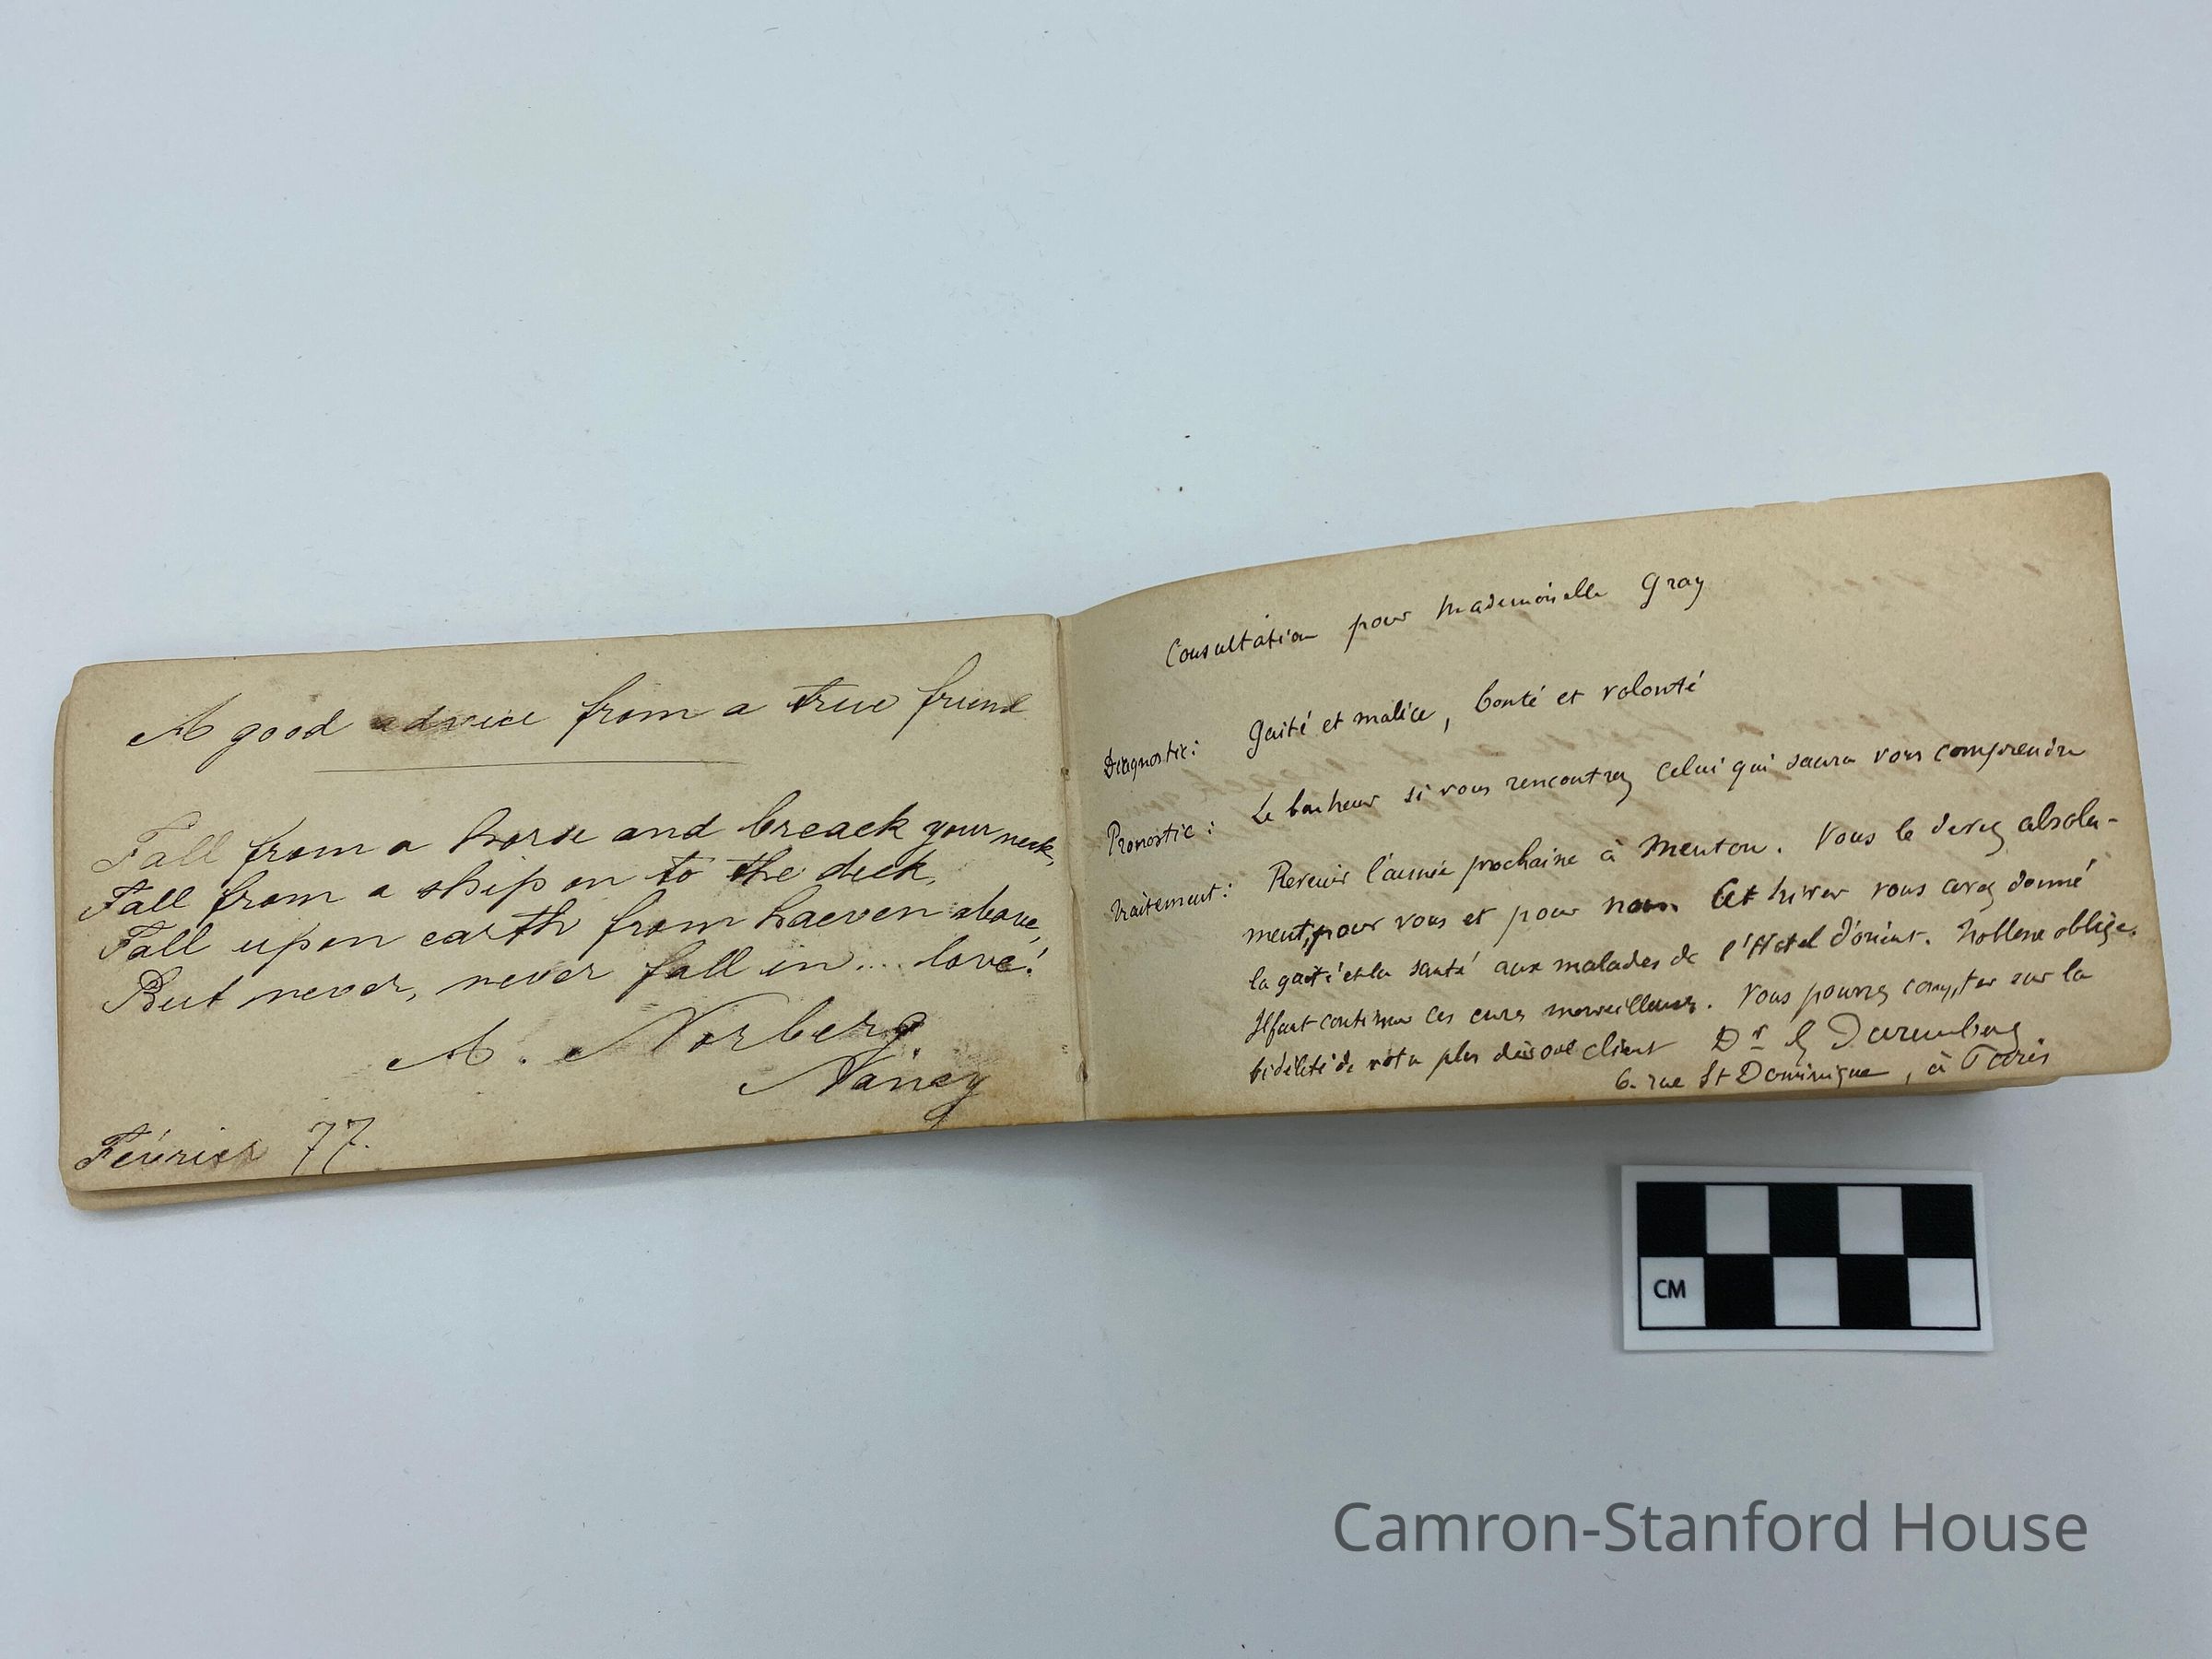 A good advice from a true friend
Fall from a horse and breack your neck,
Fall from a ship on to the deck,
Fall upon earth from haeven above,
But never, never fall in... love!
A. Norberg.
Nancy
Février 77.
Consultation pour Mademoiselle Gray
Diagnostic: Gaité et malice, bonté et volonté
Pronostic: Le bonheur si vous rencontrez celui qui saura vous comprendre
Traitement: Revenir l'année prochaine à Menton. Vous le devez absolu-
ment, pour vous et pour nous. Cet hiver vous avez donné
la gaité et la santé aux malades de l'Hotel d'orient. Noblesse oblige.
Il faut continuer ces cures merveilleuses. Vous pourrez compter sur la
fidélité de votre plus dévoué client Dr G Daremberg
6. rue St Dominique, à Paris
CM
Camron-Stanford House